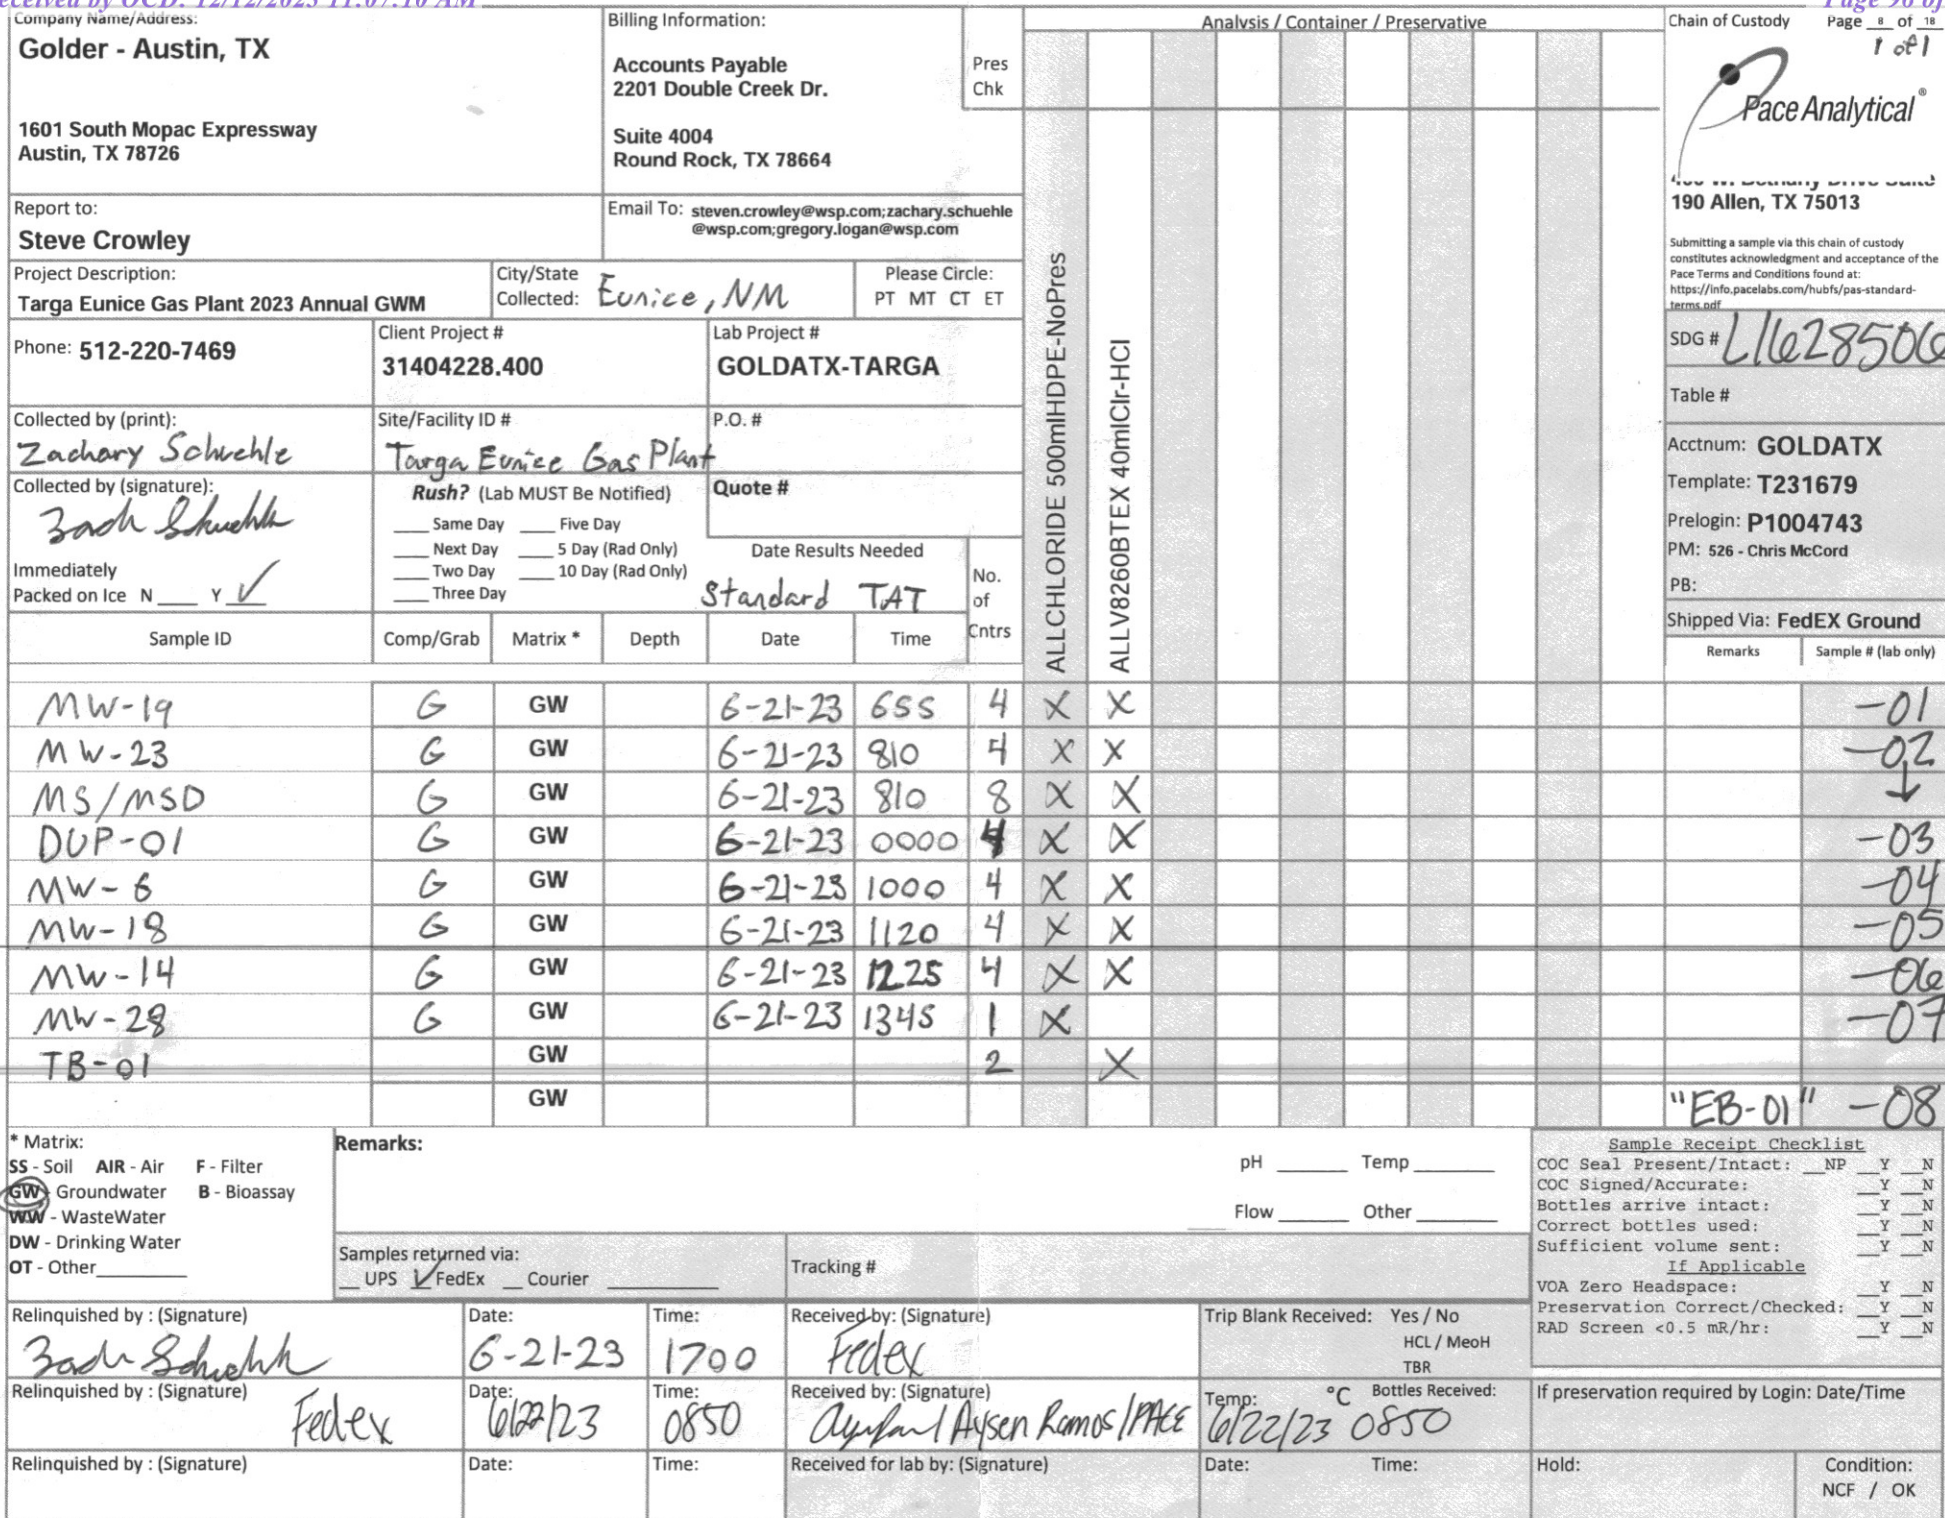 Received by OCD: 12/12/2023 11:07:10 AM
Page 96 of
Company Name/Address:
Golder - Austin, TX
1601 South Mopac Expressway
Austin, TX 78726
Billing Information:
Accounts Payable
2201 Double Creek Dr.
Suite 4004
Round Rock, TX 78664
Pres
Chk
Analysis / Container / Preservative
Chain of Custody Page 8 of 18
1 of 1
Pace Analytical®
190 Allen, TX 75013
Submitting a sample via this chain of custody
constitutes acknowledgment and acceptance of the
Pace Terms and Conditions found at:
https://info.pacelabs.com/hubfs/pas-standard-
terms.pdf
Report to:
Steve Crowley
Email To: steven.crowley@wsp.com;zachary.schuehle
@wsp.com;gregory.logan@wsp.com
Project Description:
Targa Eunice Gas Plant 2023 Annual GWM
City/State
Collected: Eunice, NM
Please Circle:
PT MT CT ET
Phone: 512-220-7469
Client Project #
31404228.400
Lab Project #
GOLDATX-TARGA
Collected by (print):
Zachary Schuehle
Site/Facility ID #
Targa Eunice Gas Plant
P.O. #
Collected by (signature):
Zach Schuehle
Rush? (Lab MUST Be Notified)
Quote #
___ Same Day ___ Five Day
___ Next Day ___ 5 Day (Rad Only)
___ Two Day ___ 10 Day (Rad Only)
___ Three Day
Date Results Needed
Standard TAT
Immediately
Packed on Ice N ___ Y ✓
No.
of
Cntrs
ALLCHLORIDE 500mlHDPE-NoPres
ALLV8260BTEX 40mlClr-HCl
SDG # L1628506
Table #
Acctnum: GOLDATX
Template: T231679
Prelogin: P1004743
PM: 526 - Chris McCord
PB:
Shipped Via: FedEX Ground
Sample ID Comp/Grab Matrix * Depth Date Time Remarks Sample # (lab only)
MW-19 G GW 6-21-23 655 4 X X -01
MW-23 G GW 6-21-23 810 4 X X -02
MS/MSD G GW 6-21-23 810 8 X X ↓
DUP-01 G GW 6-21-23 0000 4 X X -03
MW-6 G GW 6-21-23 1000 4 X X -04
MW-18 G GW 6-21-23 1120 4 X X -05
MW-14 G GW 6-21-23 1225 4 X X -06
MW-28 G GW 6-21-23 1345 1 X -07
TB-01 GW 2 X
GW "EB-01" -08
* Matrix:
SS - Soil AIR - Air F - Filter
GW - Groundwater B - Bioassay
WW - WasteWater
DW - Drinking Water
OT - Other
Remarks:
pH ___ Temp ___
Flow ___ Other ___
Samples returned via:
__ UPS ✓ FedEx __ Courier
Tracking #
Sample Receipt Checklist
COC Seal Present/Intact: __NP __Y __N
COC Signed/Accurate: __Y __N
Bottles arrive intact: __Y __N
Correct bottles used: __Y __N
Sufficient volume sent: __Y __N
If Applicable
VOA Zero Headspace: __Y __N
Preservation Correct/Checked: __Y __N
RAD Screen <0.5 mR/hr: __Y __N
Relinquished by : (Signature)
Zach Schuehle
Date:
6-21-23
Time:
1700
Received by: (Signature)
Fedex
Trip Blank Received: Yes / No
HCL / MeoH
TBR
Relinquished by : (Signature)
Fedex
Date:
6/22/23
Time:
0850
Received by: (Signature)
Aysen Ramos/PACE
Temp: °C Bottles Received:
6/22/23 0850
If preservation required by Login: Date/Time
Relinquished by : (Signature)
Date:
Time:
Received for lab by: (Signature)
Date: Time:
Hold:
Condition:
NCF / OK